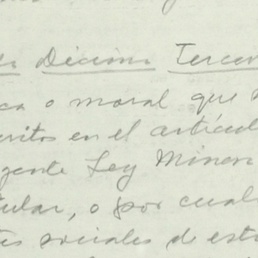 Décimo Tercer
ca o moral que
critos en el artícul
gente Ley Miner
tular, o por cual
tes sociales de est